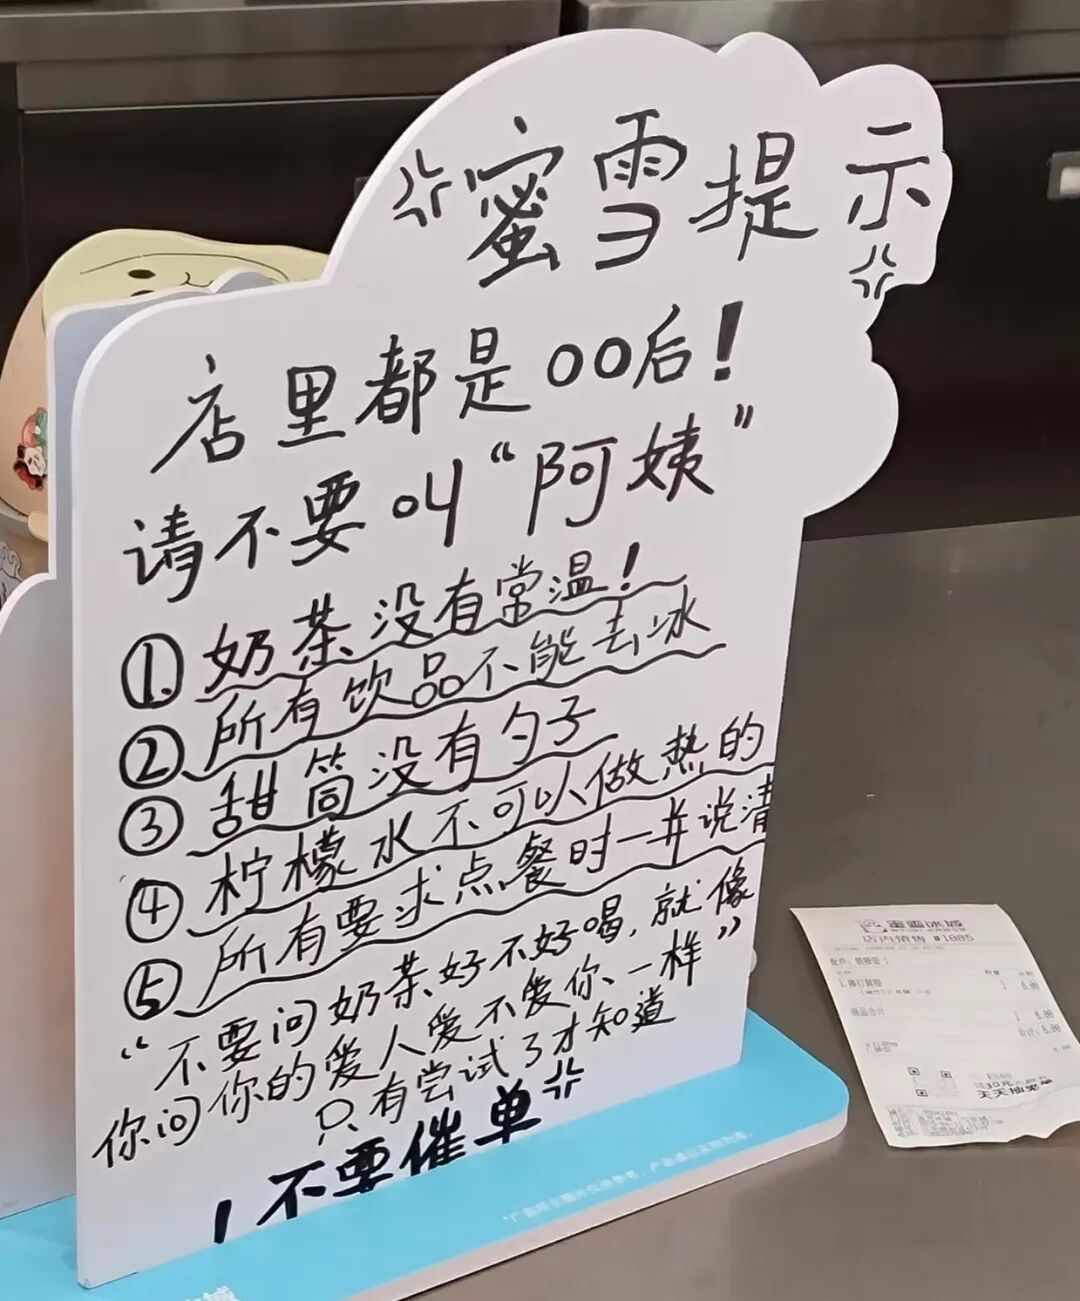 蜜雪提示
店里都是00后!
请不要叫“阿姨”
①奶茶没有常温!
②所有饮品不能去冰
③甜筒没有勺子
④柠檬水不可以做热的
⑤所有要求点餐时一并说清
“不要问奶茶好不好喝,就像
你问你的爱人爱不爱你一样”
只有尝试了才知道
!不要催单
蜜雪冰城
店内销售 #1085
1 6.00
商品合计 1 6.00
合计:6.00